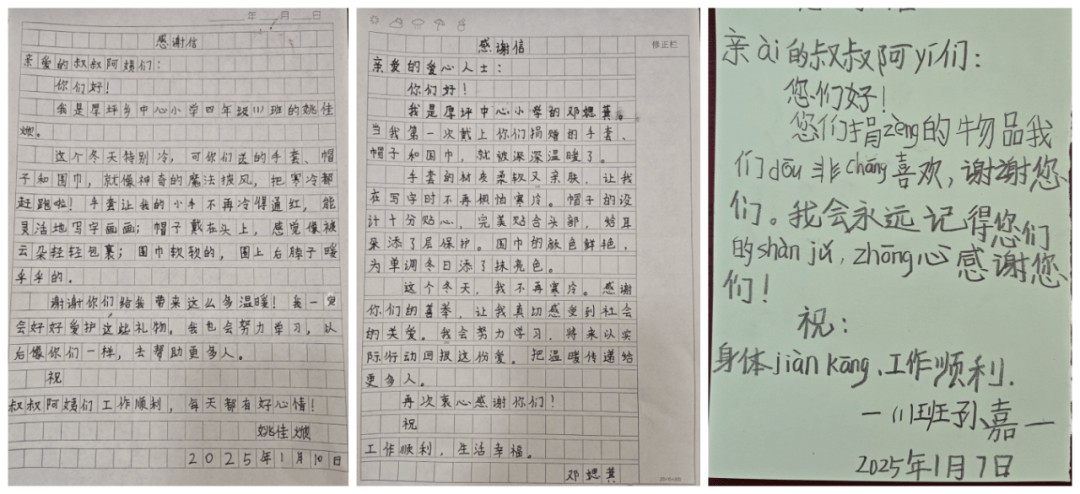 年 月 日
感谢信
亲爱的叔叔阿姨们：
你们好！
我是厚坪乡中心小学四年级（1）班的姚佳
嫩。
这个冬天特别冷，可你们送的手套、帽
子和围巾，就像神奇的魔法披风，把寒冷都
赶跑啦！手套让我的小手不再冷得通红，能
灵活地写字画画；帽子戴在头上，感觉像被
云朵轻轻包裹；围巾软软的，围上后脖子暖
乎乎的。
谢谢你们给我带来这么多温暖！我一定
会好好爱护这些礼物。我也会努力学习，以
后像你们一样，去帮助更多人。
祝
叔叔阿姨们工作顺利，每天都有好心情！
姚佳嫩
2025年1月10日
感谢信
修正栏
亲爱的爱心人士：
你们好！
我是厚坪中心小学的邓
当我第一次戴上你们捐赠的手套、
帽子和围巾，就被深深温暖了。
手套的材质柔软又亲肤，让我
在写字时不再惧怕寒冷。帽子的设
计十分贴心，完美贴合头部，给耳
朵添了层保护。围巾的颜色鲜艳，
为单调冬日添了抹亮色。
这个冬天，我不再寒冷。感谢
你们的善举，让我真切感受到社会
的关爱。我会努力学习，将来以实
际行动回报这份爱。把温暖传递给
更多人。
再次衷心感谢你们！
祝
工作顺利，生活幸福。
邓
亲ài的叔叔阿yí们：
您们好！
您们捐zèng的物品我
们dōu非cháng喜欢，谢谢您
们。我会永远记得您们
的shàn jǔ，zhōng心感谢您
们！
祝：
身体jiàn kāng、工作顺利．
一（1）班孙嘉一
2025年1月7日